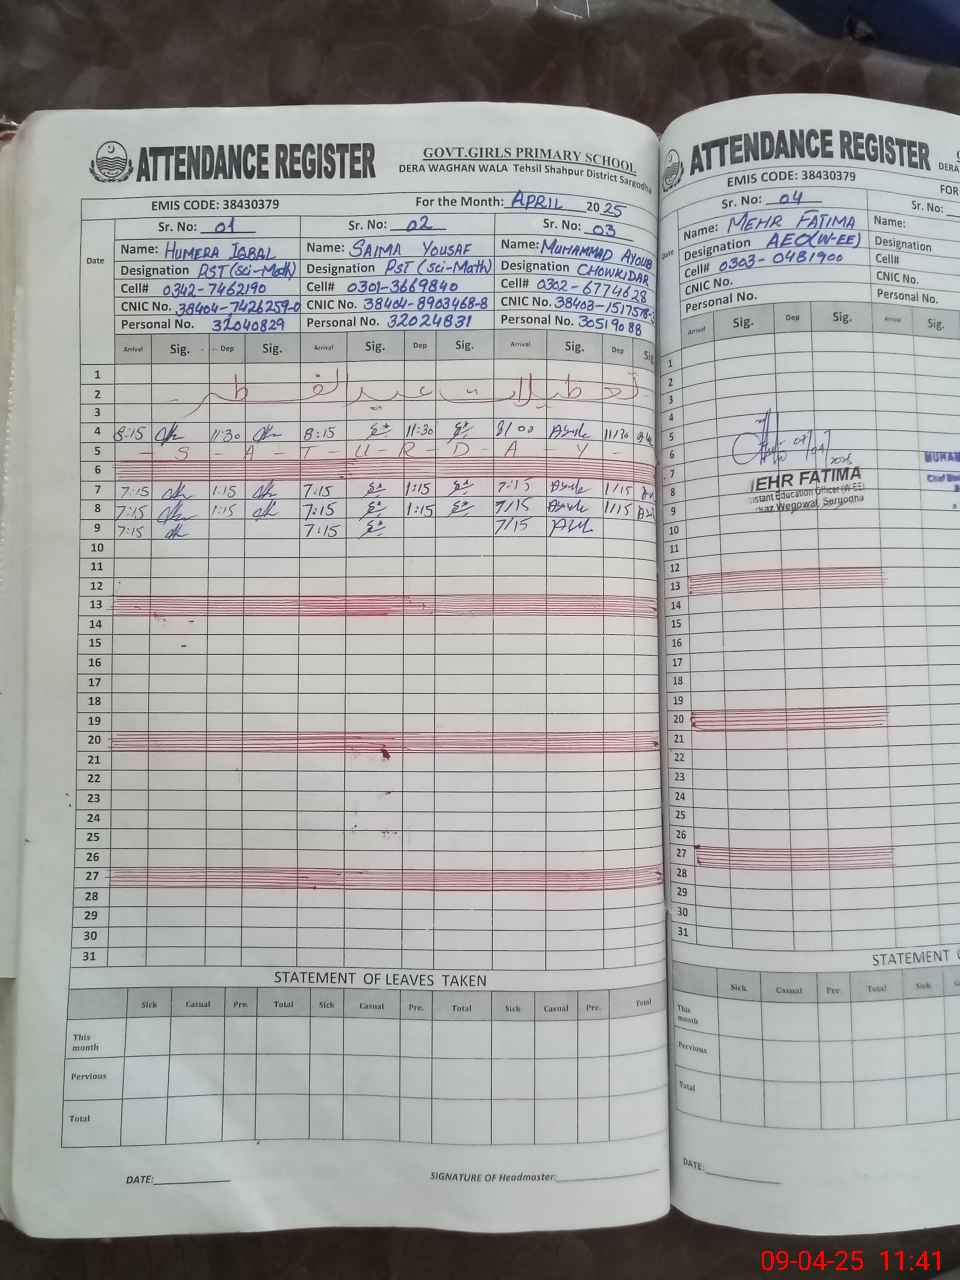 ATTENDANCE REGISTER
GOVT.GIRLS PRIMARY SCHOOL
DERA WAGHAN WALA Tehsil Shahpur District Sargodha
EMIS CODE: 38430379
For the Month: APRIL 2025
Sr. No: 01 Sr. No: 02 Sr. No: 03
Date
Name: HUMERA IQBAL Name: SAIMA YOUSAF Name: MUHAMMAD AYOUB
Designation PST (sci-Math) Designation PST (sci-Math) Designation CHOWKIDAR
Cell# 0342-7462190 Cell# 0301-3669840 Cell# 0302-6774628
CNIC No. 38404-7426259-0 CNIC No. 38404-8903468-8 CNIC No. 38403-1517578-
Personal No. 32040829 Personal No. 32024831 Personal No. 30519088
Arrival Sig. Dep Sig. Arrival Sig. Dep Sig. Arrival Sig. Dep
1
2 تعطیلات عید الفطر
3
4 8:15 11:30 8:15 11:30 8/00 11/30
5 - S - A - T - U - R - D - A - Y -
6
7 7:15 1:15 7:15 1:15 7:15 1/15
8 7:15 1:15 7:15 1:15 7/15 1/15
9 7:15 7:15 7/15
10
11
12
13
14
15
16
17
18
19
20
21
22
23
24
25
26
27
28
29
30
31
STATEMENT OF LEAVES TAKEN
Sick Casual Pre. Total Sick Casual Pre. Total Sick Casual Pre. Total
This month
Pervious
Total
DATE:
SIGNATURE OF Headmaster:
ATTENDANCE REGISTER
DERA
EMIS CODE: 38430379
FOR
Sr. No: 04 Sr. No:
Date
Name: MEHR FATIMA Name:
Designation AEO(W-EE) Designation
Cell# 0303-0481900 Cell#
CNIC No. CNIC No.
Personal No. Personal No.
Arrival Sig. Dep Sig. Arrival Sig.
1
2
3
4
5
6
7
8
9
10
11
12
13
14
15
16
17
18
19
20
21
22
23
24
25
26
27
28
29
30
31
MEHR FATIMA
Assistant Education Officer (W-EE)
Markaz Wegowal, Sargodha
STATEMENT
Sick Casual Pre. Total Sick
This month
Pervious
Total
DATE:
09-04-25 11:41